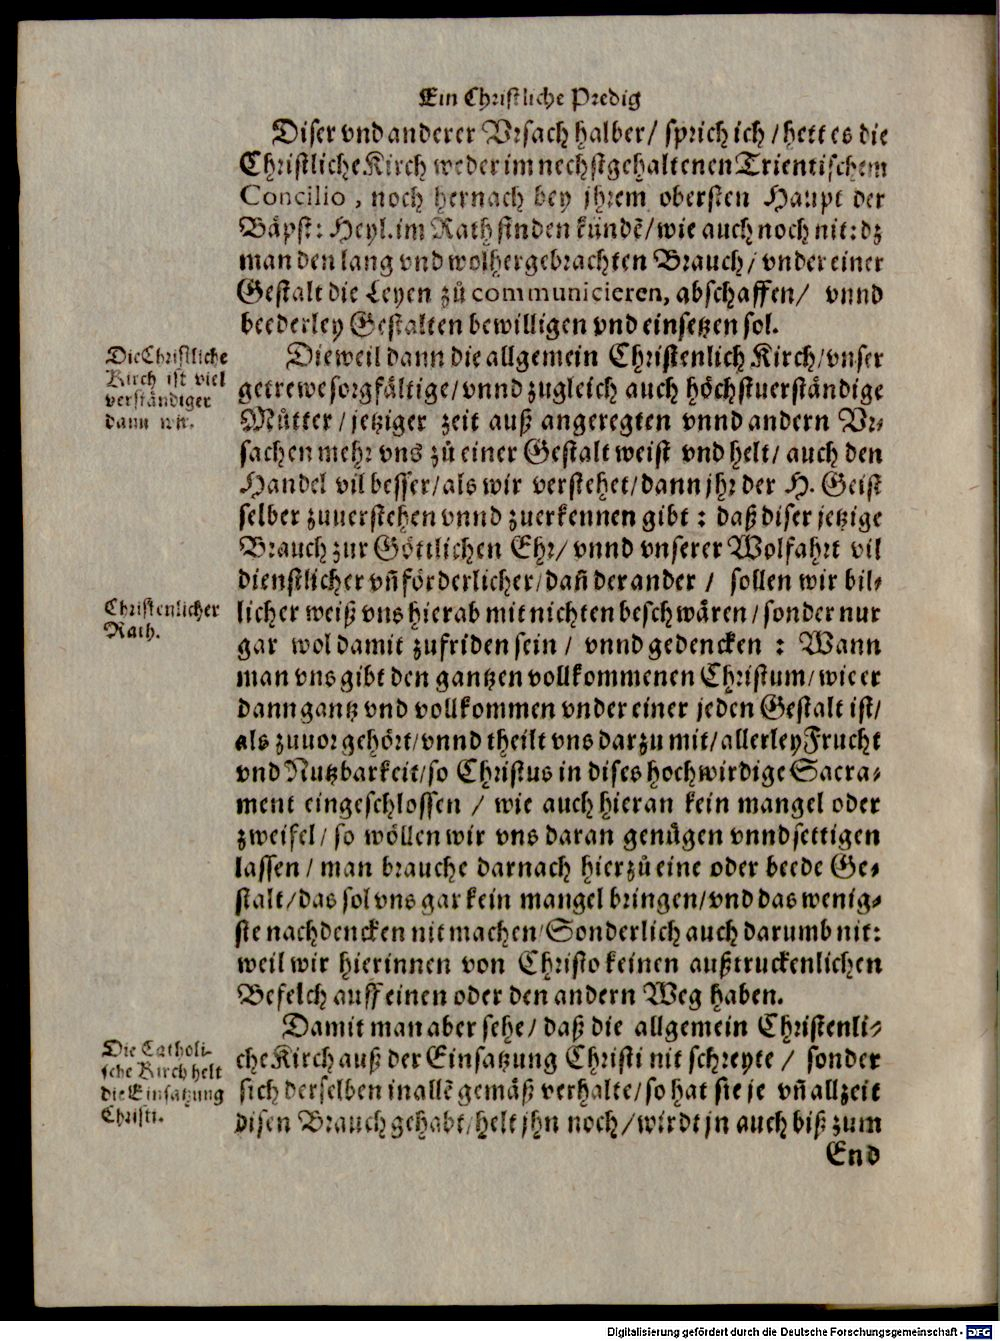 Ein Christliche Predig
Diser vnd anderer Vrsach halber/ sprich ich/ hett es die
Christliche Kirch weder im nechstgehaltenen Trientischem
Concilio, noch hernach bey jhrem obersten Haupt der
Bäpst: Heyl. im Rath finden kündẽ/ wie auch noch nit: dz
man den lang vnd wolhergebrachten Brauch/ vnder einer
Gestalt die Leyen zů communicieren, abschaffen/ vnnd
beederley Gestalten bewilligen vnd einsetzen sol.
Die Christliche
Kirch ist viel
verständiger
dann wir.
Dieweil dann die allgemein Christenlich Kirch/ vnser
getrewe sorgfältige/ vnnd zugleich auch höchstuerständige
Můtter/ jetziger zeit auß angeregten vnnd andern Vr-
sachen mehr vns zů einer Gestalt weist vnd helt/ auch den
Handel vil besser/ als wir verstehet/ dann jhr der H. Geist
selber zuuerstehen vnnd zuerkennen gibt: daß diser jetzige
Brauch zur Göttlichen Ehr/ vnnd vnserer Wolfahrt vil
dienstlicher vñ förderlicher/ dañ der ander/ sollen wir bil-
Christenlicher
Rath.
licher weiß vns hierab mit nichten beschwären/ sonder nur
gar wol damit zufriden sein/ vnnd gedencken: Wann
man vns gibt den gantzen vollkommenen Christum/ wie er
dann gantz vnd vollkommen vnder einer jeden Gestalt ist/
als zuuor gehört/ vnnd theilt vns darzu mit/ allerley Frucht
vnd Nutzbarkeit/ so Christus in dises hochwirdige Sacra-
ment eingeschlossen/ wie auch hieran kein mangel oder
zweifel/ so wöllen wir vns daran genůgen vnnd settigen
lassen/ man brauche darnach hierzů eine oder beede Ge-
stalt/ das sol vns gar kein mangel bringen/ vnd das wenig-
ste nachdencken nit machen/ Sonderlich auch darumb nit:
weil wir hierinnen von Christo keinen außtruckenlichen
Befelch auff einen oder den andern Weg haben.
Damit man aber sehe/ daß die allgemein Christenli-
Die Catholi-
sche Kirch helt
die Einsatzung
Christi.
che Kirch auß der Einsatzung Christi nit schreyte/ sonder
sich derselben in allẽ gemäß verhalte/ so hat sie je vñ allzeit
disen Brauch gehabt/ helt jhn noch/ wirdt jn auch biß zum
End
Digitalisierung gefördert durch die Deutsche Forschungsgemeinschaft - DFG